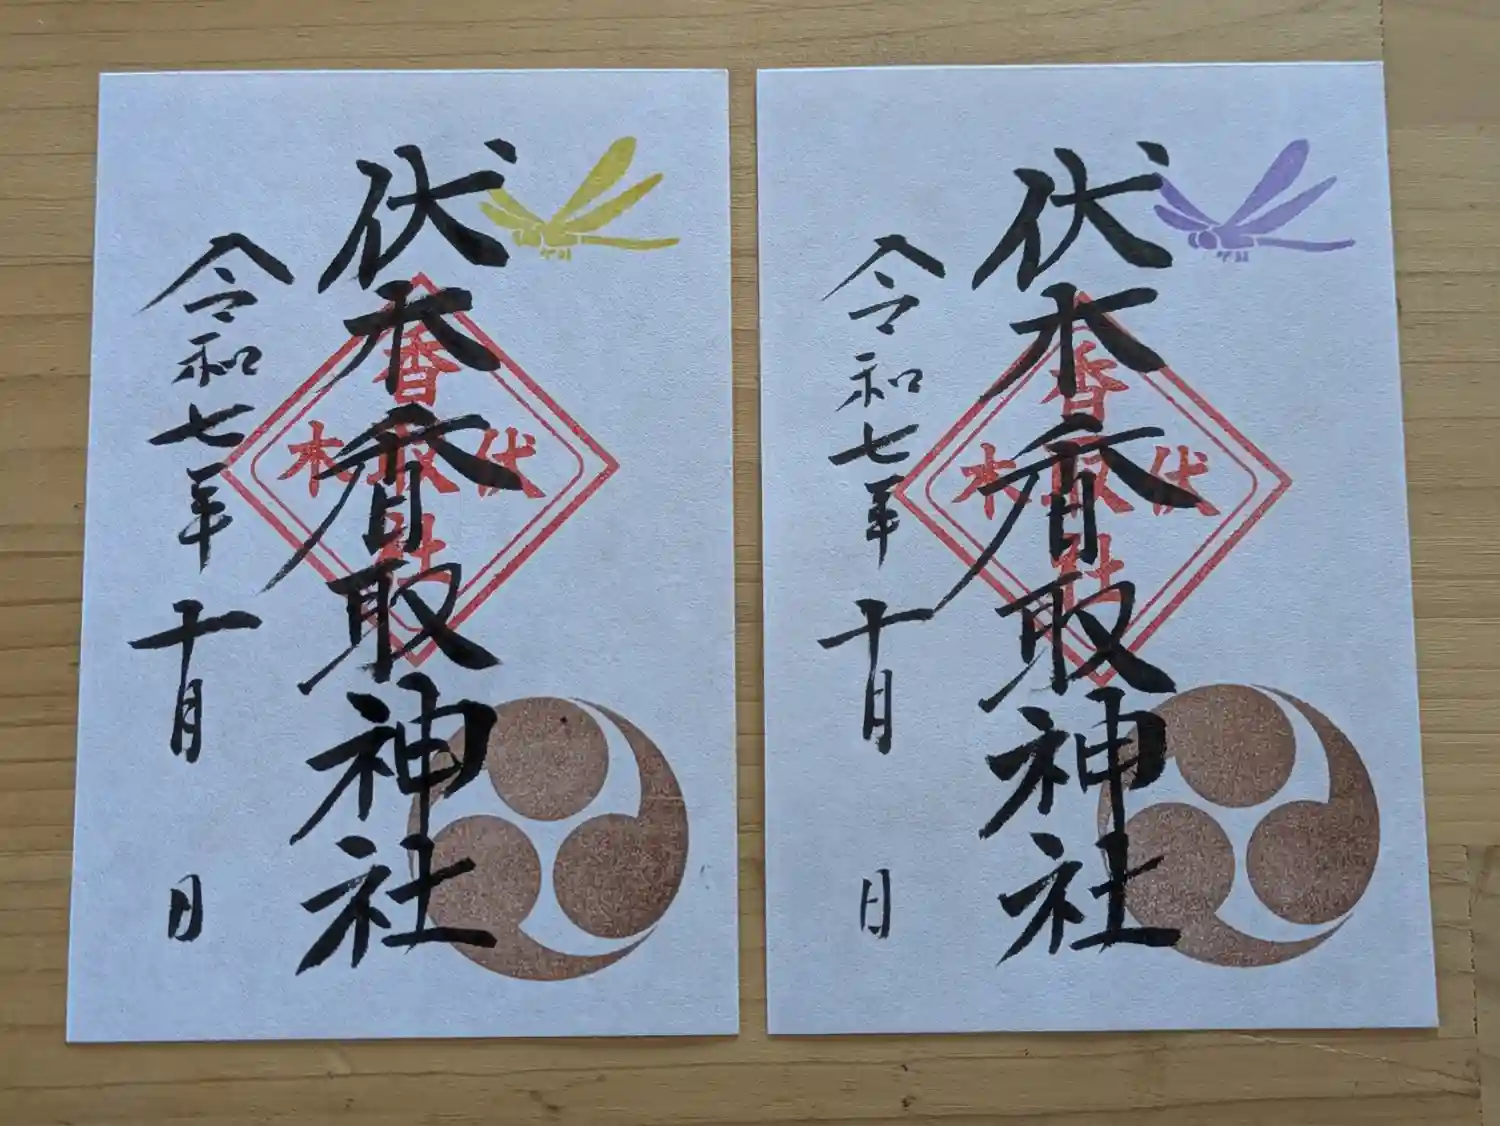 伏木香取神社
香取社
伏木
令和七年十月 日
伏木香取神社
香取社
伏木
令和七年十月 日